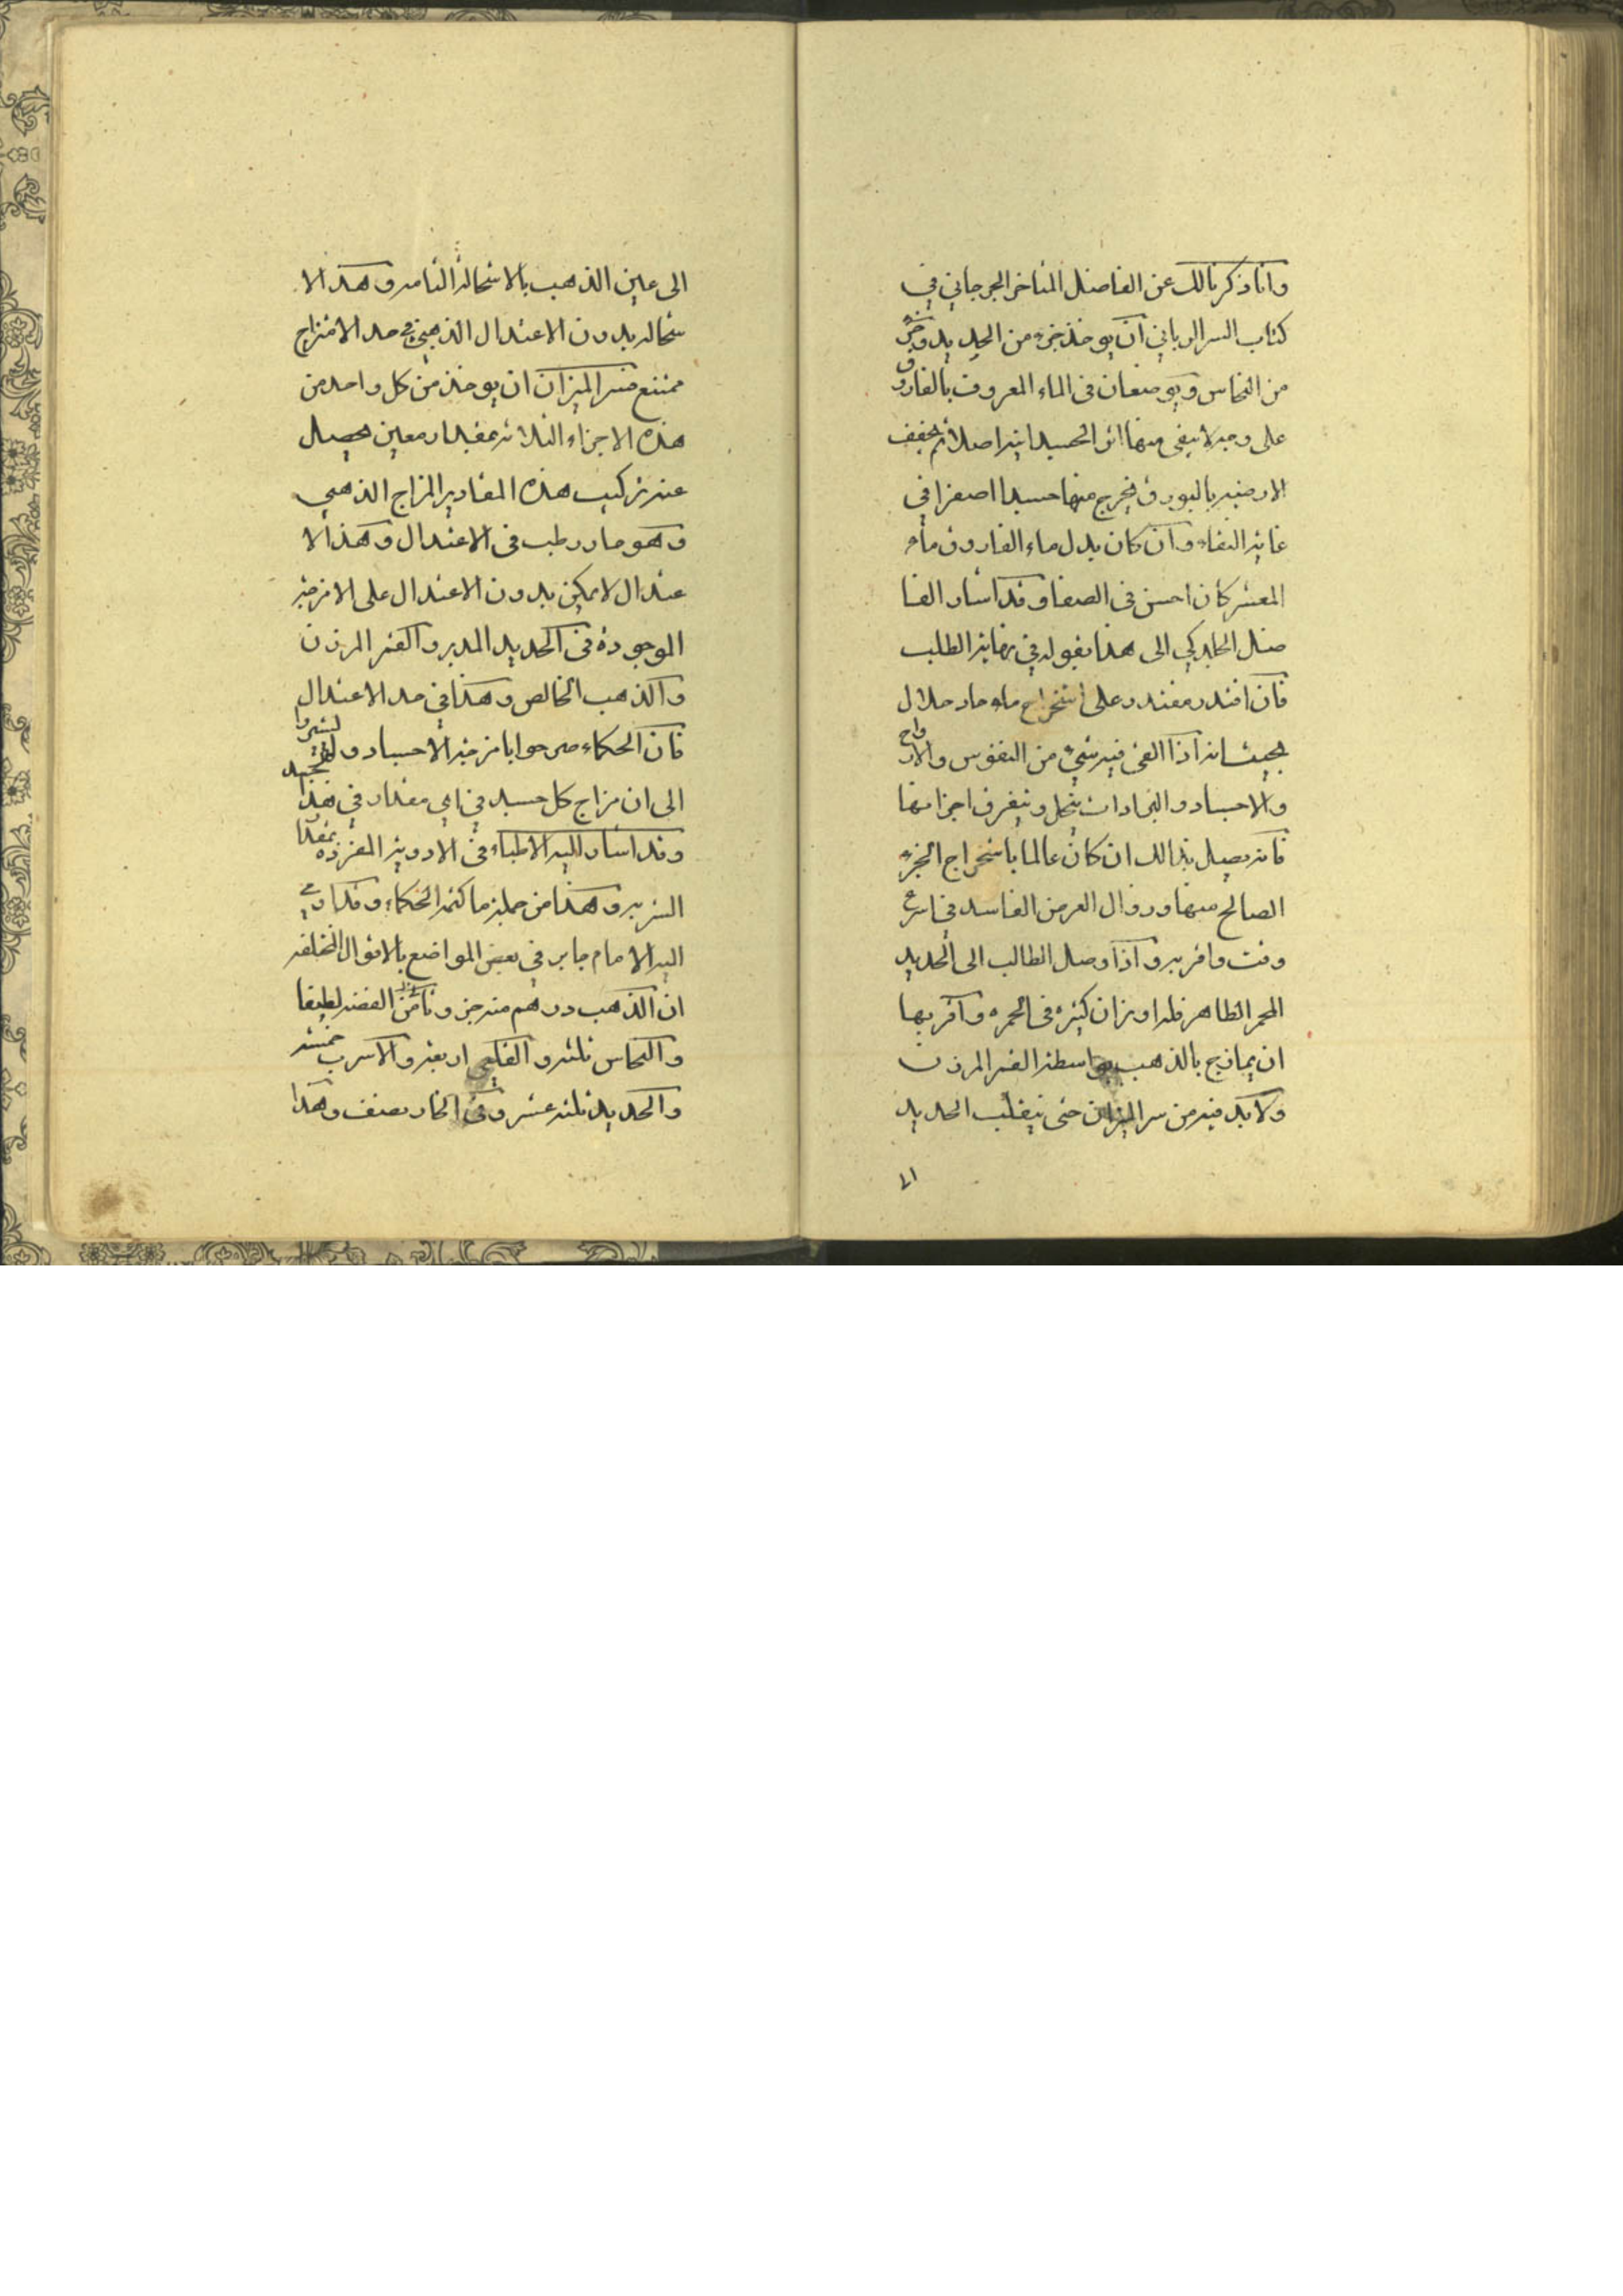 وانا ذكرنا لك عن الفاضل المتاخر الجرجاني في
كتاب السر الرباني ان يوخذ جزء من الحديد وجزء
من النحاس ويوضعان في الماء المعروف بالفاروق
على وجه لا يبقى منها اثر الجسدانية اصلا ثم يجفف
الارضية بالبورق فيخرج منها جسدا اصفرا في
غاية النقاء وان كان بدل ماء الفاروق ماء
المعشر كان احسن في الصفا وقد اشار الفا
ضل الجلدكي الى هذا بقوله في نهاية الطلب
فان اقتدر مقتدر على استخراج ماء حاد حلال
بحيث انه اذا القى فيه شيء من النفوس والارواح
والاجساد والنجادات ينحل ويتفرق اجزائها
فانه يصل بذالك ان كان عالما باستخراج الجزء
الصالح منها وزوال العرض الفاسد في اسرع
وقت واقربه واذا وصل الطالب الى الحديد
المحمر الطاهر فله اوزان كثيره في الحمره واقربها
ان يمازج بالذهب بواسطة القمر المرزن
ولا بد فيه من سر الميزان حتى ينقلب الحديد
٧١
الى عين الذهب بالاستحالة التامه وهذ الا
ستحاله بدون الاعتدال الذهبي في حد الامتزاج
ممتنع فسر الميزان ان يوخذ من كل واحد من
هذه الاجزاء الثلاثه بمقدار معين يحصل
عند تركيب هذه المقادير المزاج الذهبي
وهو حار رطب في الاعتدال وهذ الا
عتدال لا يمكن بدون الاعتدال على الامزجة
الموجودة في الحديد المدبر والقمر المرزن
والذهب الخالص وهذا في حد الاعتدال
فان الحكماء صرحوا بامزجة الاجساد ولم يشيروا
الى ان مزاج كل جسد في اي مقدار في هذ
وقد اشار اليه الاطباء في الادوية المفرده بمقدا
السر به وهذا من جملة ما كتمه الحكماء وقد اومى
اليه الامام جابر في بعض المواضع بالاقوال المختلفه
ان الذهب درهم منه جز وثامن الفضه لطيفا
والنحاس ثلثه والقلعي اربعه والاسرب خمسه
والحديد ثلثه عشر وفي الحار نصف وهذا